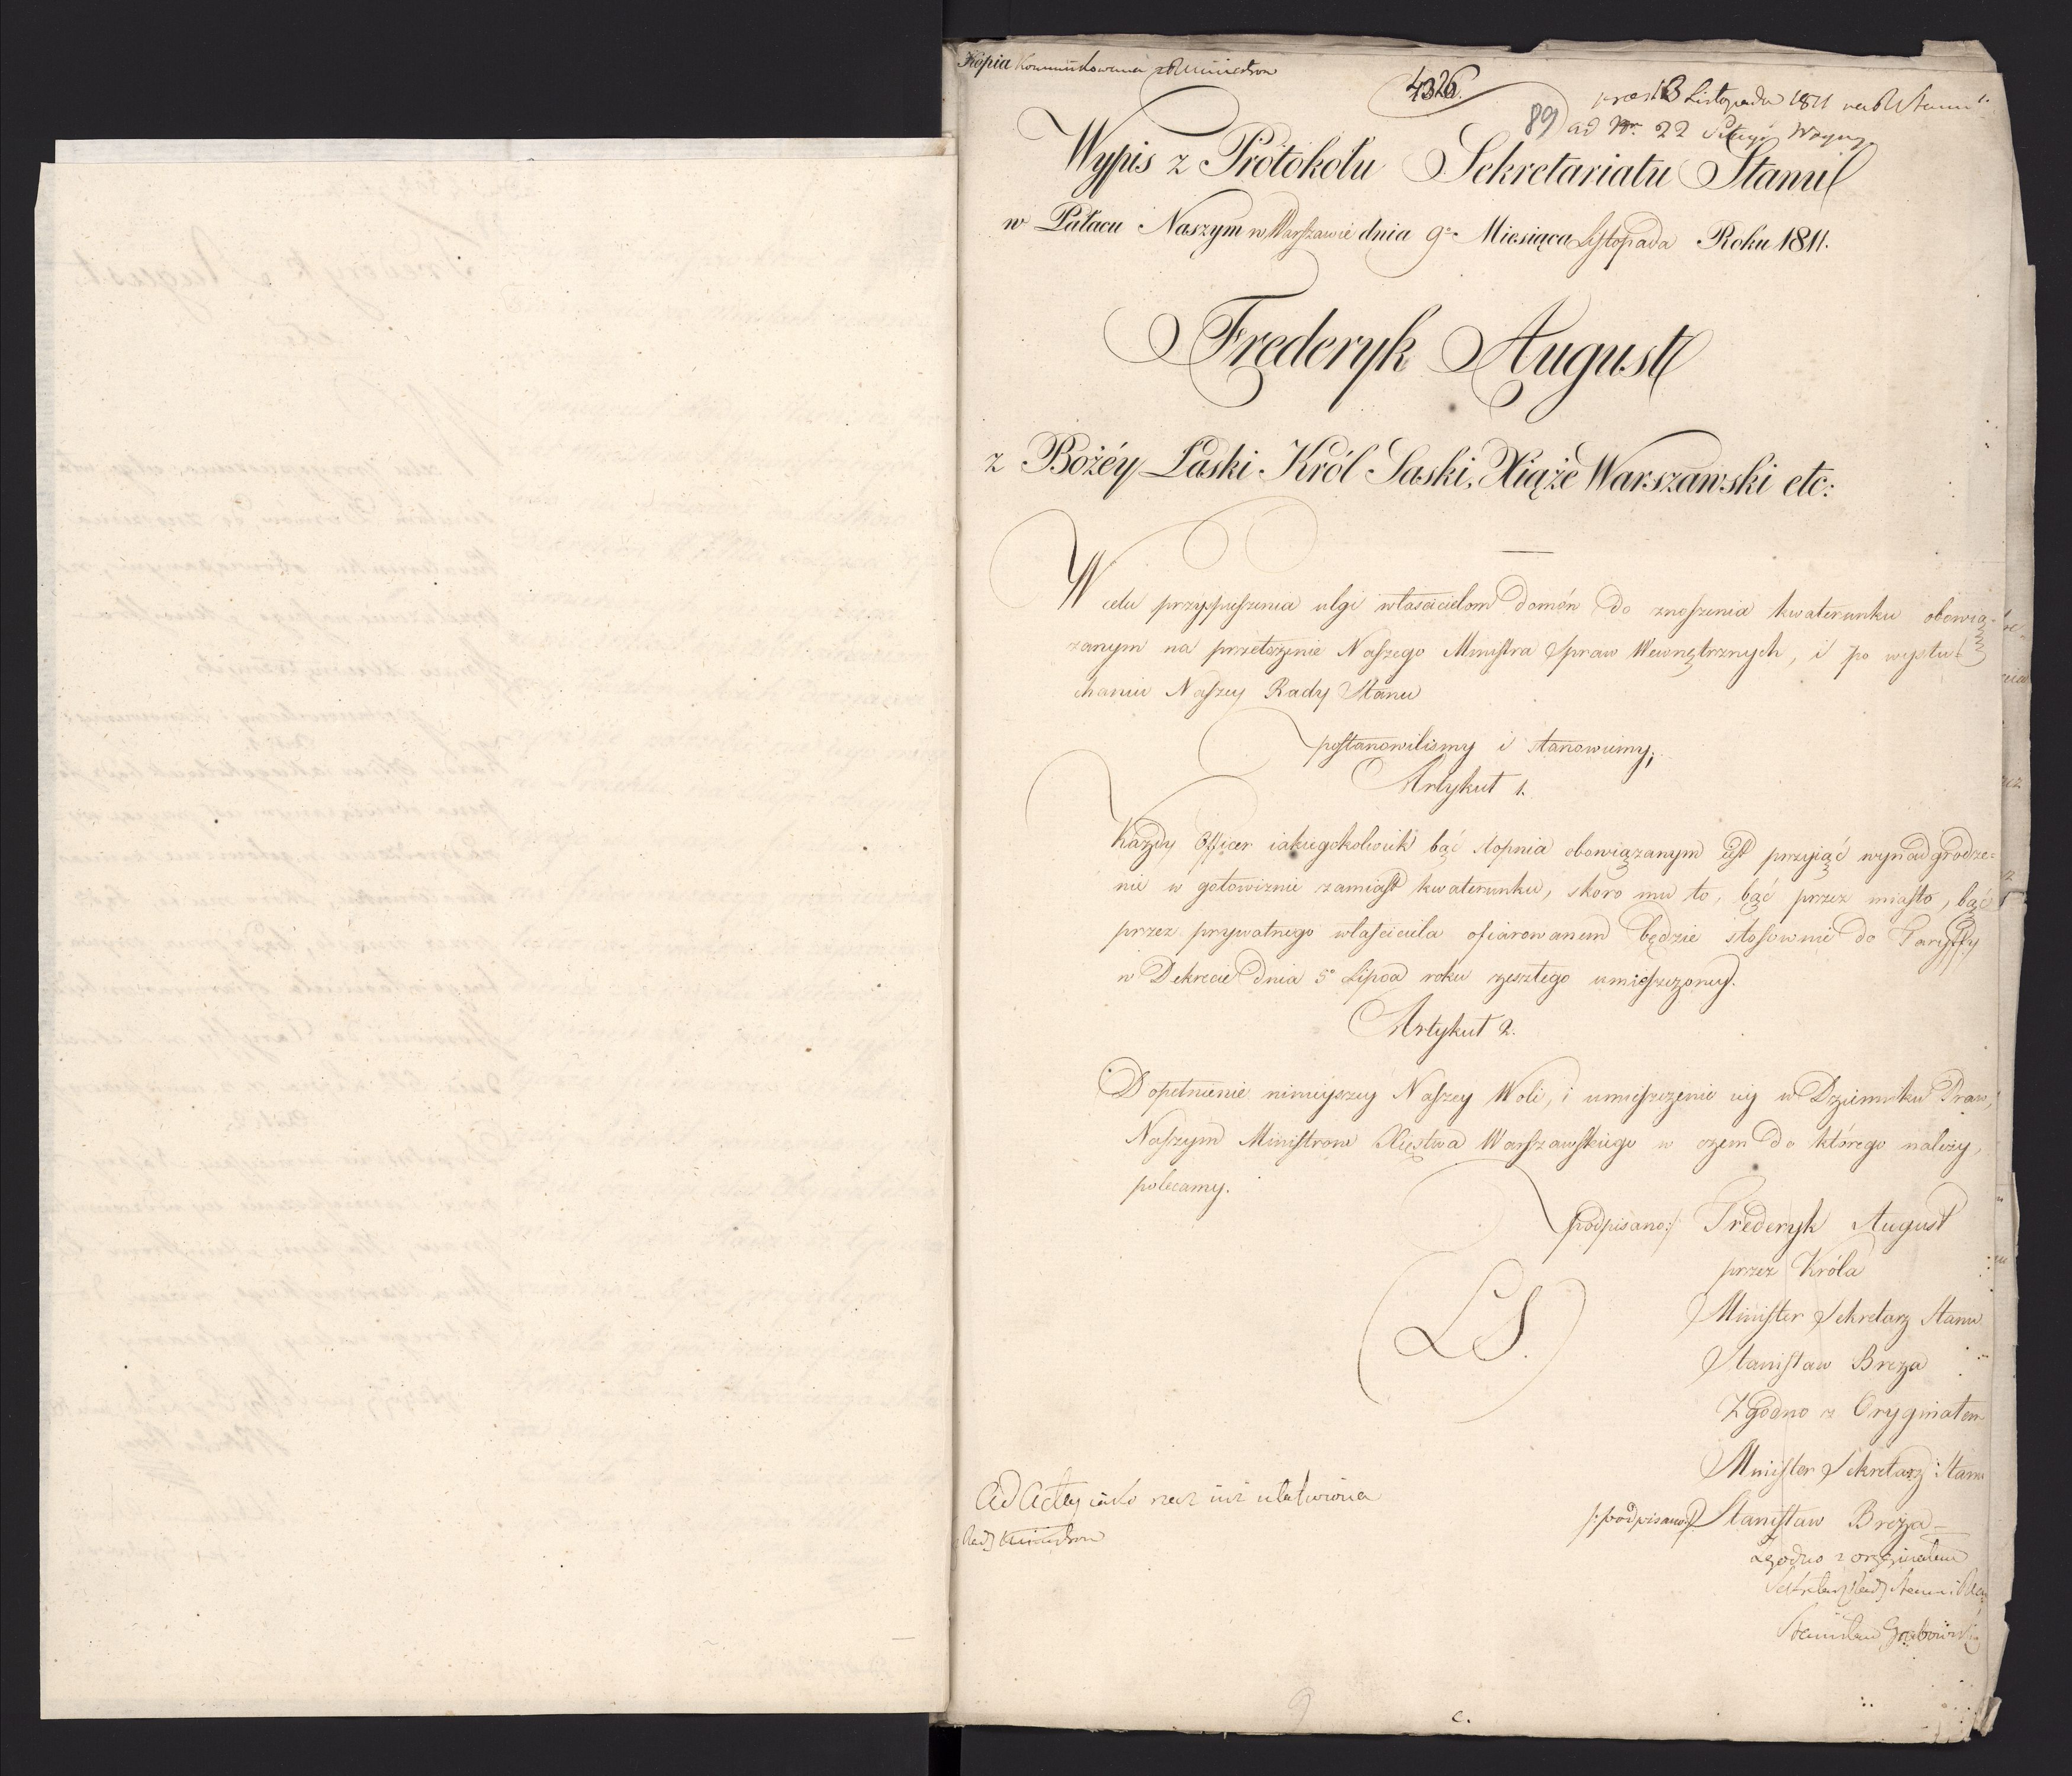 Kopia kommunikowana z Ministrom
4326.
89
praes 13 Listopada 1811 rad. Stanu
ad Nr. 22 Sekcyi Woyny
Wypis z Protokołu Sekretariatu Stanu
w Pałacu Naszym w Warszawie dnia 9o Miesiąca Listopada Roku 1811.
Frederyk August
z Bożéy Łaski Król Saski, Xiąże Warszawski etc:
W celu przypuszenia ulgi właścicielom domów do znoszenia kwaterunku obowią-
zanym na przełożenie Naszego Ministra Spraw Wewnętrznych, i po wysłu-
chaniu Naszey Rady Stanu
postanowiliśmy i stanowimy;
Artykuł 1.
Każdy Officer iakiegokolwiek bąć stopnia obowiązanym iest przyiąć wynadgrodze-
nie w gotowiznie zamiast kwaterunku, skoro mu to, bąć przez miasto, bąć
przez prywatnego właściciela ofiarowanem będzie stosownie do Taryffy
w Dekrecie dnia 5o Lipca roku zeszłego umieszczoney.
Artykuł 2.
Dopełnienie ninieyszey Naszey Woli, i umieszczenie iey w Dzienniku Praw,
Naszym Ministrom Xięstwa Warszawskiego w czem do którego należy,
polecamy.
/podpisano:/ Frederyk August
przez Króla
Minister Sekretarz Stanu
Stanisław Breza
LS.
Zgodno z Oryginałem
Minister Sekretarz Stanu
/:podpisano:/ Stanisław Breza
Zgodno z oryginałem
Sekretarz Rady Stanu i
Stanisław Grabowski
Ad Acta jako rzecz iuż ułatwiona
Rady Ministrów
c.